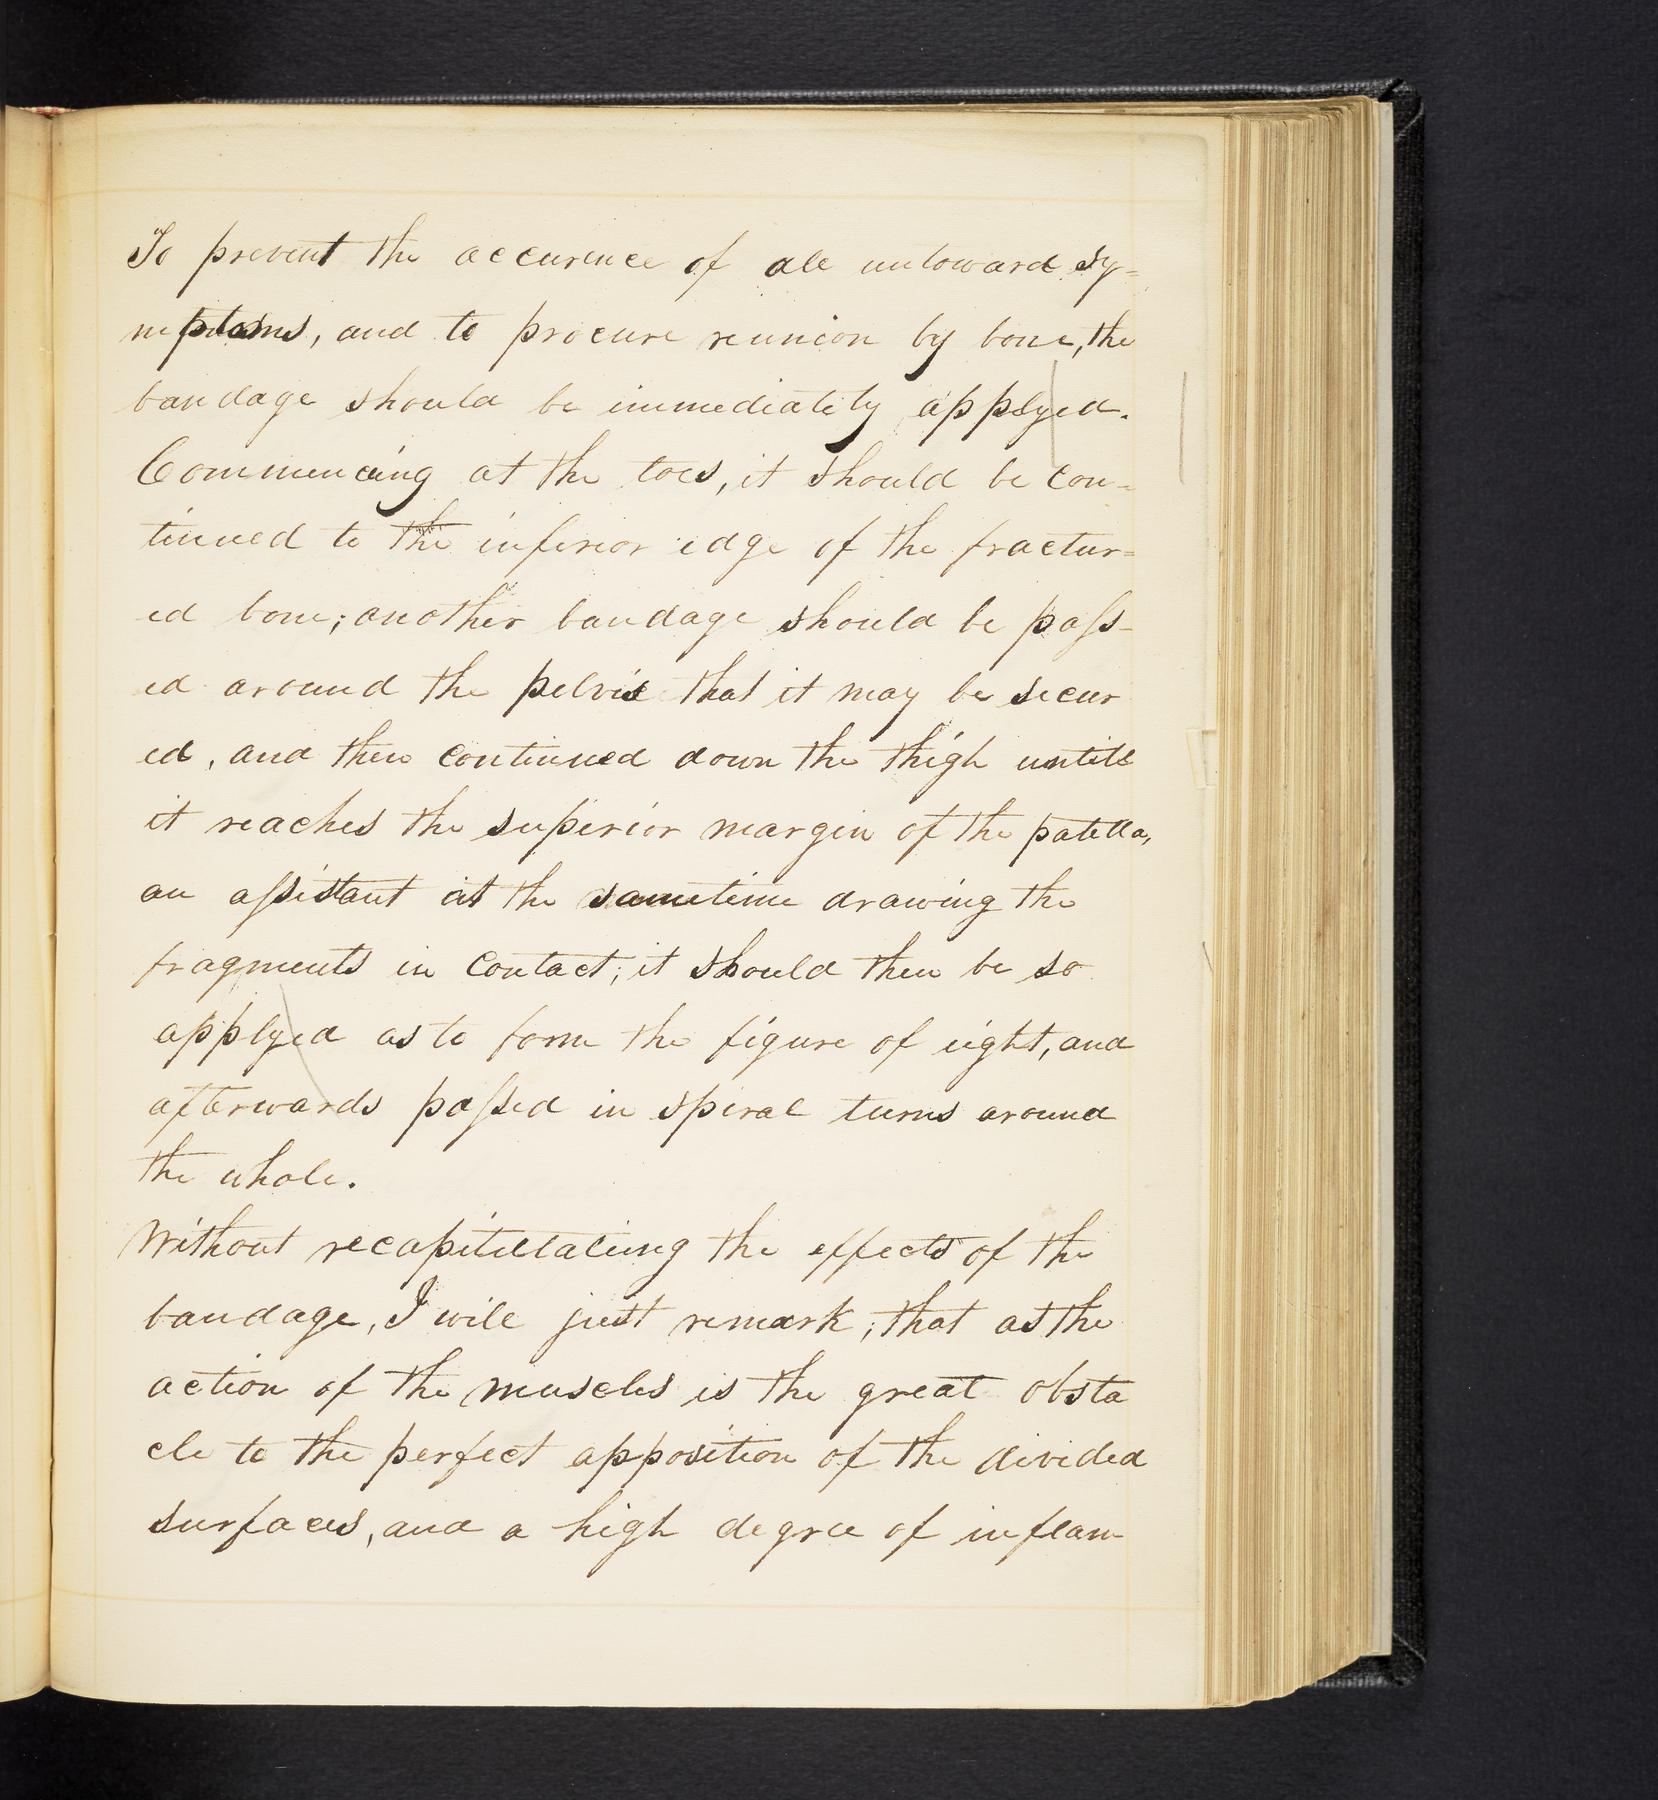 To prevent the accurence of all untoward sy=
mptoms, and to procure reunion by bone, the
bandage should be immediately applyed.
Commencing at the toes, it should be con=
tinued to the inferior edge of the fractur=
ed bone; another bandage should be pass-
ed around the pelvis that it may be secur
ed, and then continued down the thigh untill
it reaches the superior margin of the patella,
an assistant at the sametime drawing the
fragments in contact; it should then be so
applyed as to form the figure of eight, and
afterwards passed in spiral turns around
the whole.
Without recapitulating the effects of the
bandage, I will just remark, that as the
action of the muscles is the great obsta
cle to the perfect apposition of the divided
surfaces, and a high degree of inflam